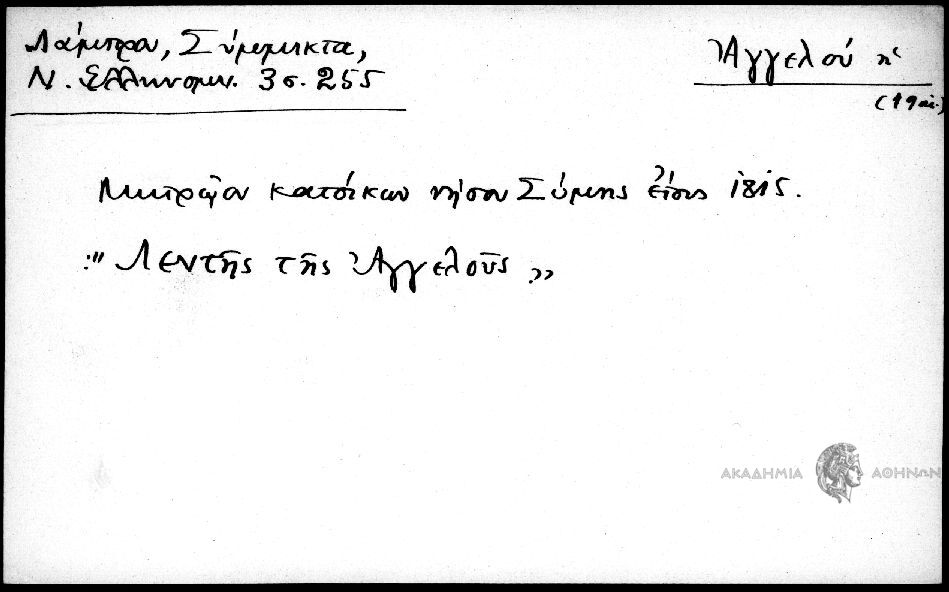 Λάμπρου, Σύμμικτα,
Ν. Ἑλληνομν. 3 σ. 255
Ἀγγελού ἡ
(19 αἰ.)
Μητρῷον κατοίκων νήσου Σύμης ἔτους 1815.
:" Λεντῆς τῆς Ἀγγελοῦς „
ΑΚΑΔΗΜΙΑ ΑΘΗΝΩΝ